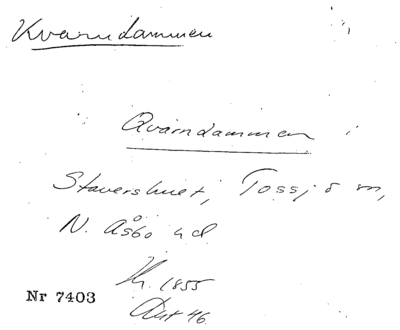 Kvarndammen
Qvarndammen i
Stavershuet, Tossjö m,
N. Åsbo hd
Kr. 1855
Nr 7403
Akt 46